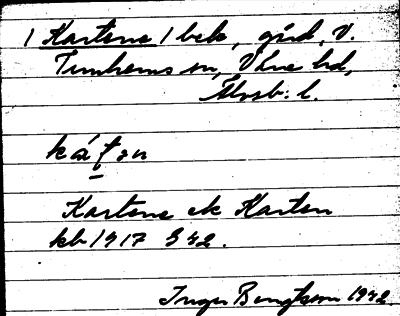 1 Kartene 1 bek, gård, V.
Tunhems sn, Väne hd,
Älvsb. l.
Kartene ek Karten
kb 1917 § 42.
Inger Bengtsson 1942